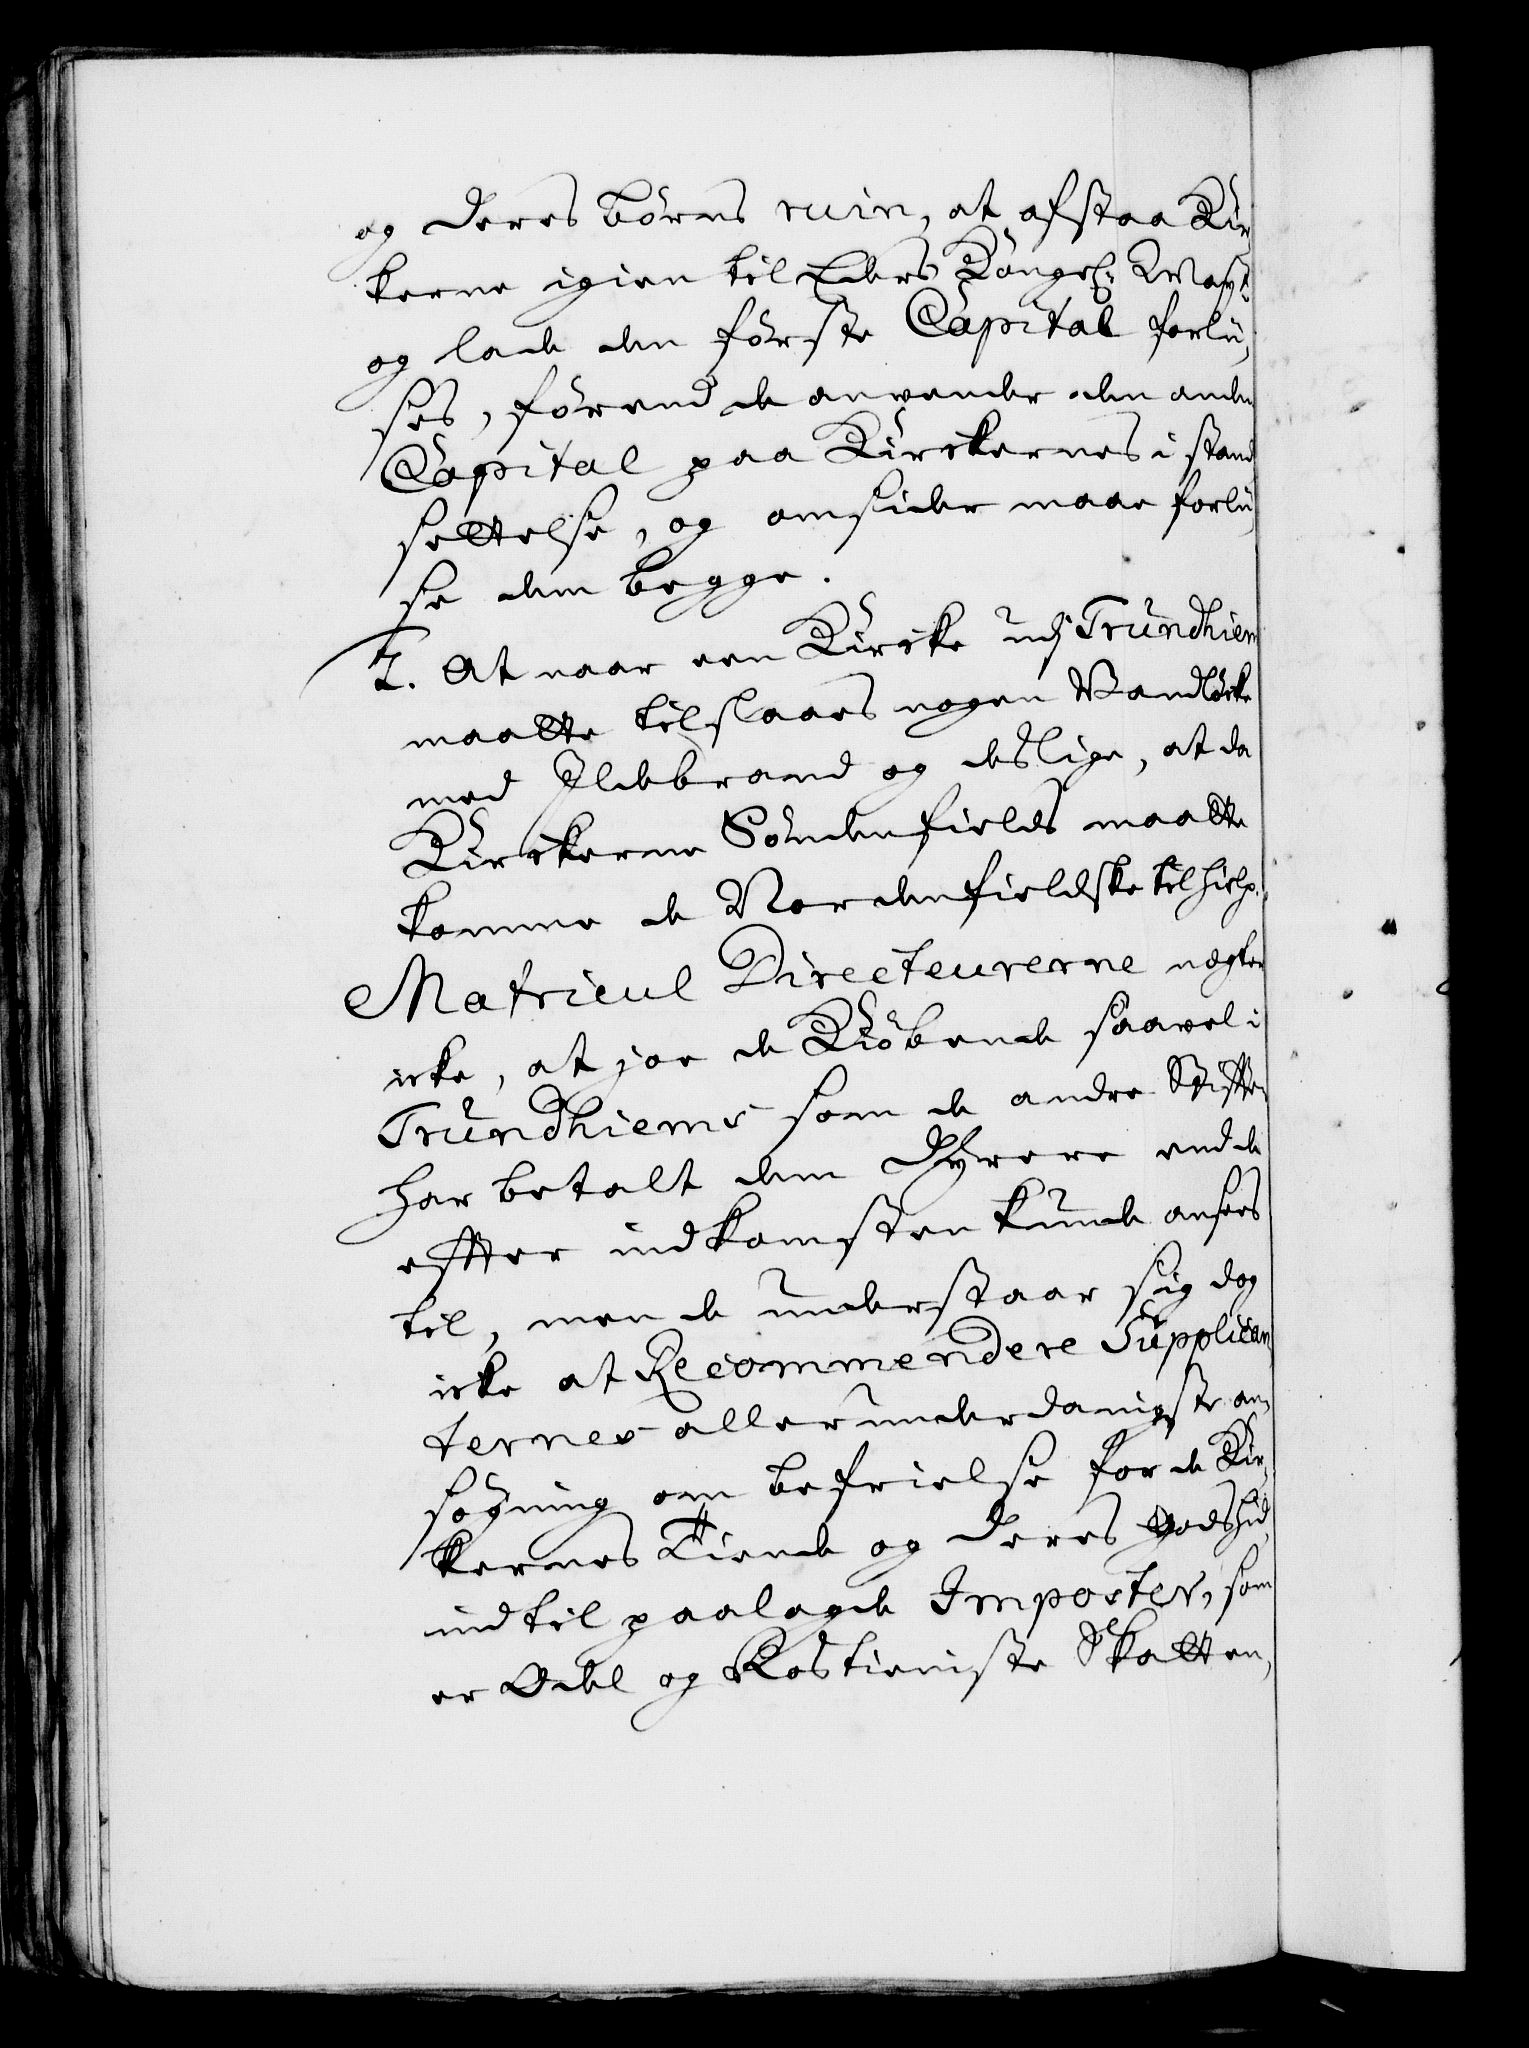 og deres børns ruin, at afstaa Kir
kerne igien til Eders Kongel: May:t
og lade den første Capital forlii,
ses, førend de anvender den anden
Capital paa Kirckernes i stand
settelse, og omsider maae forlii,
se dem begge.
7. At naar een Kircke udj Trundhiem
maatte tilslaaes nogen Vandlöcke
med Ildebrand og deslige, at da
Kirckerne Söndenfields maatte
komme de Nordenfieldske til hielp.
Matricul Directeurerne negter
icke, at joe de Kiöbende saavel i
Trundhiems som de andre Stifter
har betalt dem dyrere end de
effter indkomsten kunde ansees
til, men de understaar sig dog
icke at Recommendere Supplican,
ternes allerunderdanigste an,
søgning om befrielse for de Kir,
kernes Tiende og deres Godshid,
indtil paalagde Imposter, som
er Odel og Rostieniste Skatten,